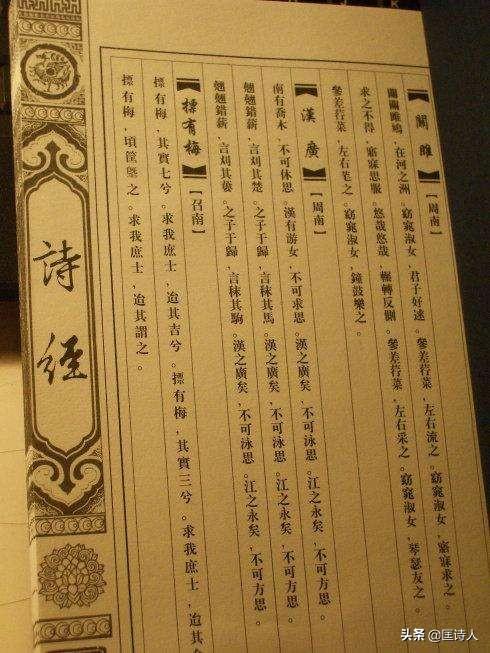 關雎【周南】
關關雎鳩,在河之洲。窈窕淑女,君子好逑。參差荇菜,左右流之。窈窕淑女,寤寐求之。
求之不得,寤寐思服。悠哉悠哉,輾轉反側。參差荇菜,左右采之。窈窕淑女,琴瑟友之。
參差荇菜,左右芼之。窈窕淑女,鐘鼓樂之。
漢廣【周南】
南有喬木,不可休思。漢有游女,不可求思。漢之廣矣,不可泳思。江之永矣,不可方思。
翹翹錯薪,言刈其楚。之子于歸,言秣其馬。漢之廣矣,不可泳思。江之永矣,不可方思。
翹翹錯薪,言刈其蔞。之子于歸,言秣其駒。漢之廣矣,不可泳思。江之永矣,不可方思。
摽有梅【召南】
摽有梅,其實七兮。求我庶士,迨其吉兮。摽有梅,其實三兮。求我庶士,迨其
摽有梅,頃筐塈之。求我庶士,迨其謂之。
詩經
头条 @匡诗人